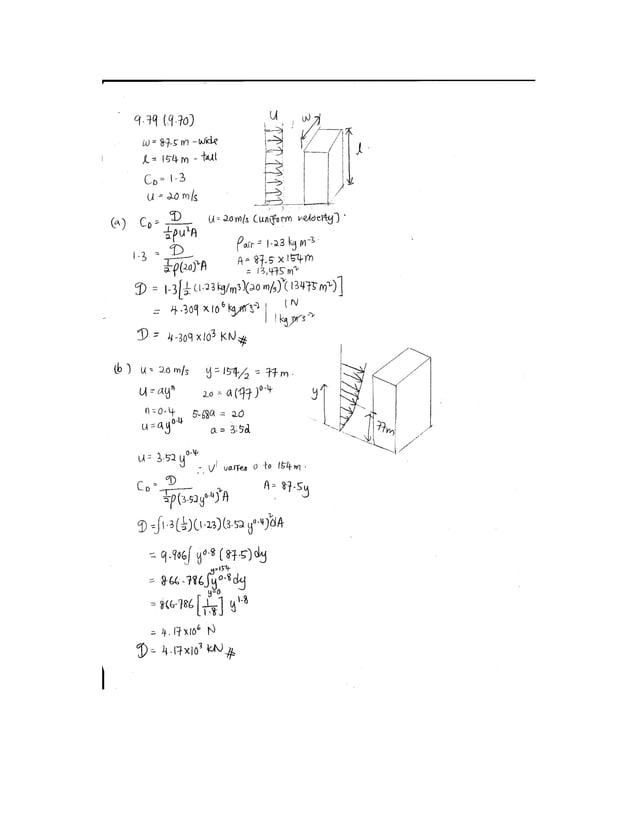 9.79 (9.70)
U
w
l
w = 87.5 m - wide
l = 154 m - tall
C_D = 1.3
u = 20 m/s
(a) C_D = D / (½ρu²A) u = 20 m/s (uniform velocity).
1.3 = D / (½ρ(20)²A) ρair = 1.23 kg m⁻³
A = 87.5 × 154 m
= 13,475 m²
D = 1.3[½(1.23 kg/m³)(20 m/s)²(13475 m²)]
= 4.309 × 10⁶ kg m s⁻² | 1 N / 1 kg m s⁻²
D = 4.309 × 10³ KN #
(b) u = 20 m/s y = 154/2 = 77 m.
u = ayⁿ 20 = a(77)^0.4
n = 0.4 5.68a = 20
u = ay^0.4 a = 3.52
y
77m
u = 3.52 y^0.4
∴ V varies 0 to 154 m.
C_D = D / (½ρ(3.52 y^0.4)²A) A = 87.5y
D = ∫1.3(½)(1.23)(3.52 y^0.4)² dA
= 9.906∫ y^0.8 (87.5) dy
= 866.786 ∫_{y=0}^{y=154} y^0.8 dy
= 866.786 [1/1.8] y^1.8
= 4.17×10⁶ N
D = 4.17×10³ KN #